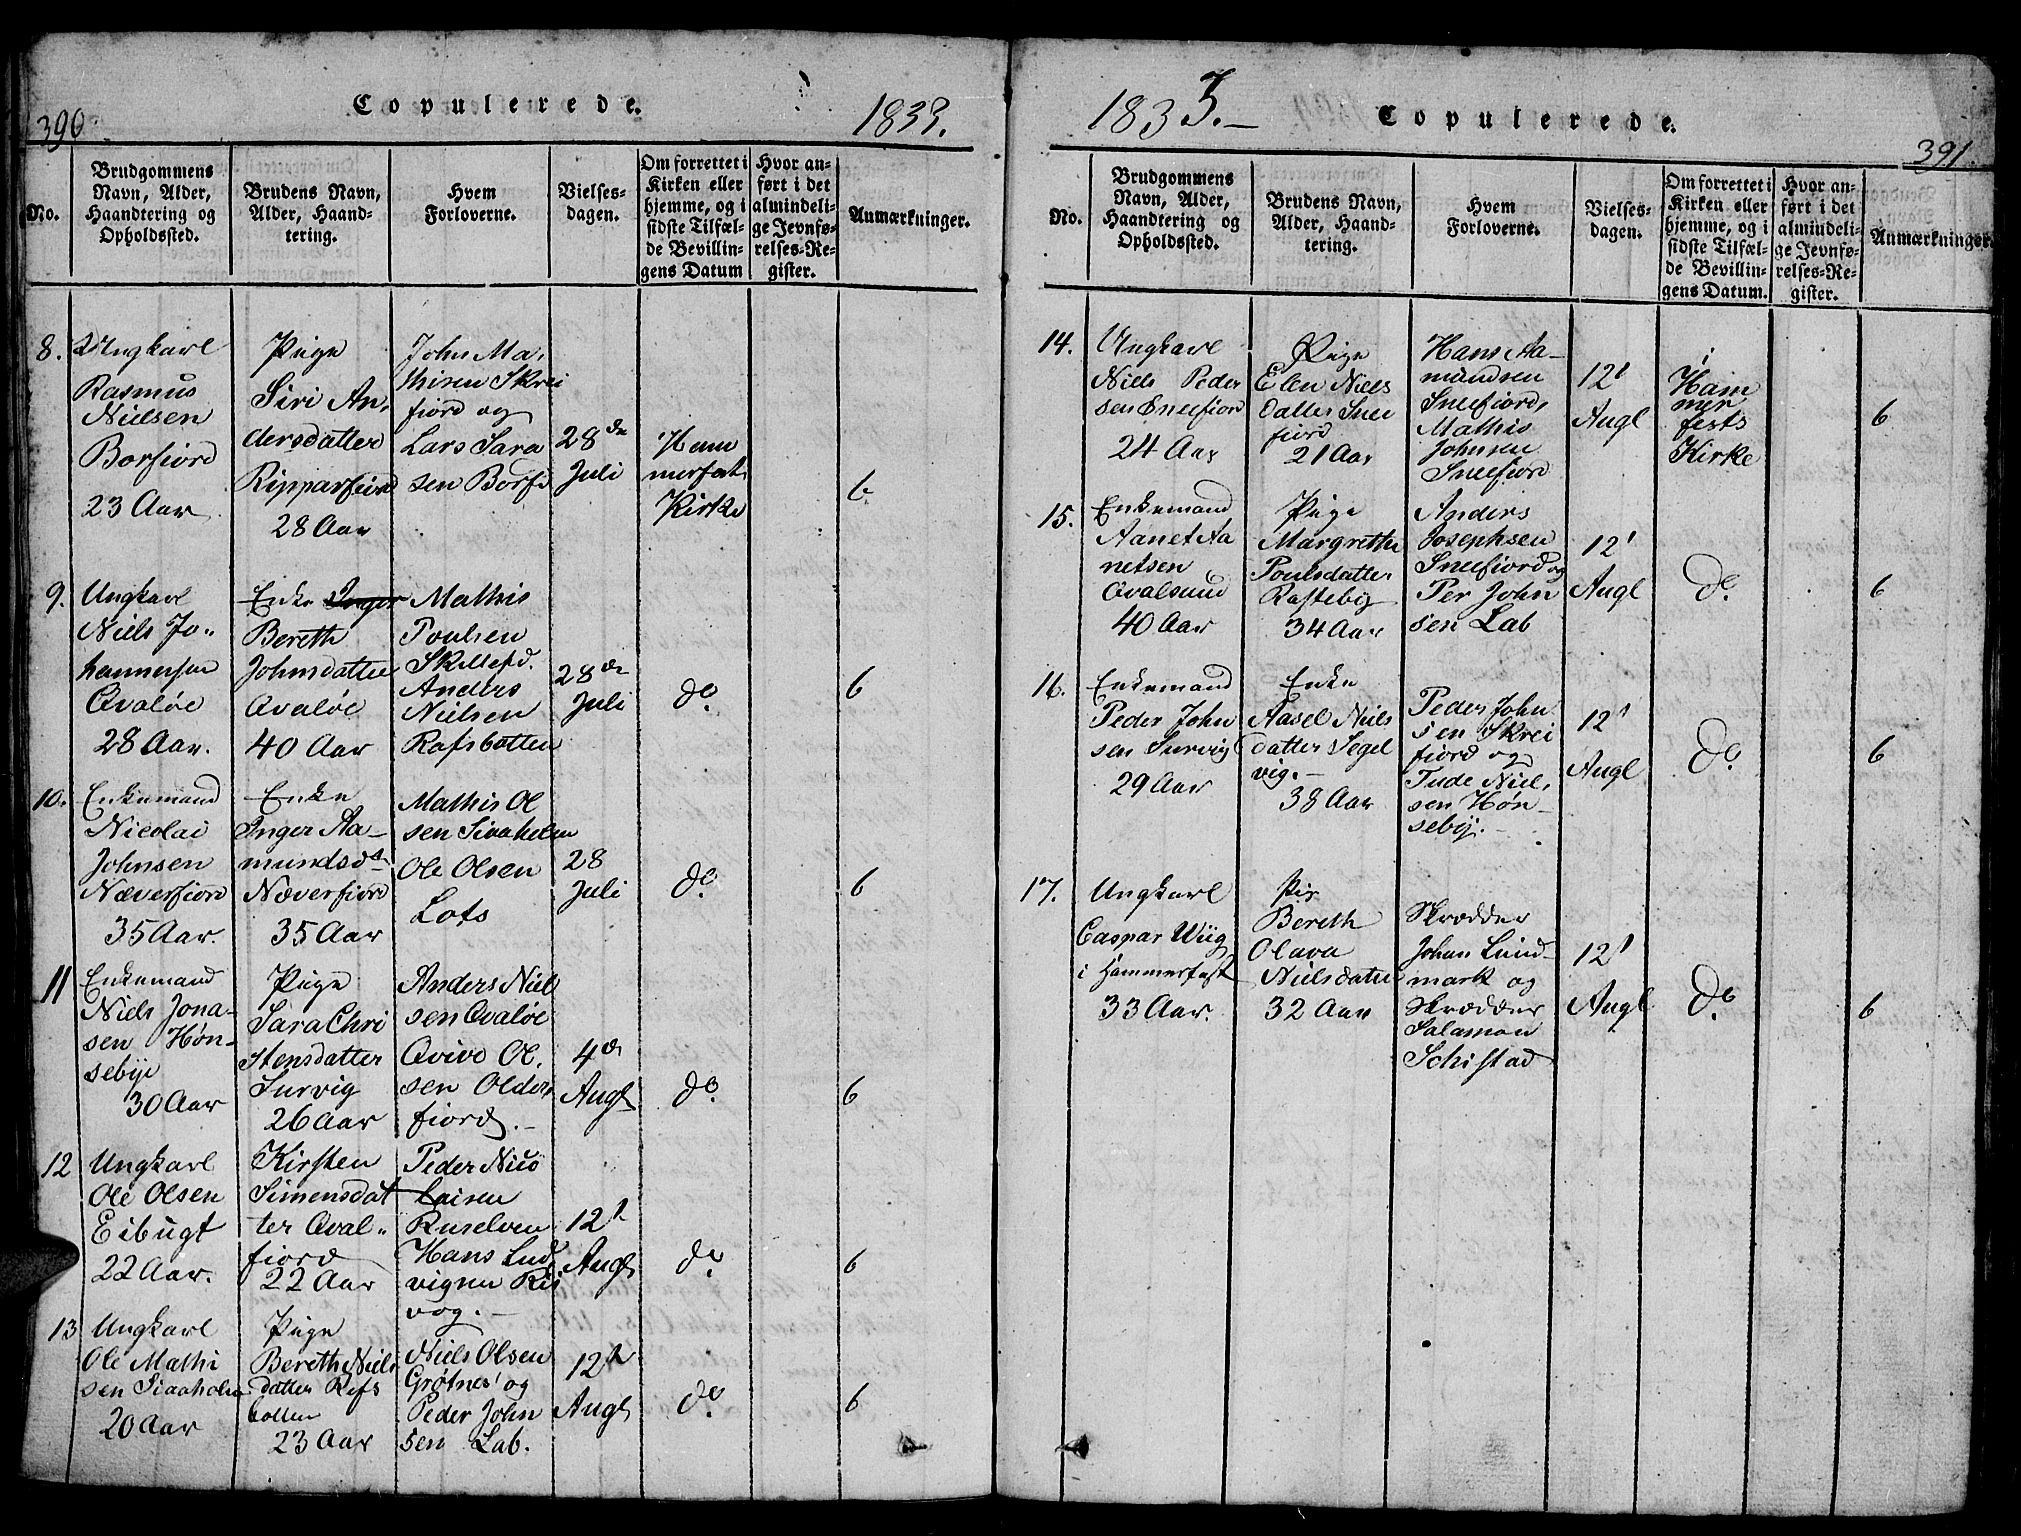 390
Copulerede.
1833.
No.
Brudgommens
Navn, Alder,
Haandtering og
Opholdssted.
Brudens Navn,
Alder, Haand-
tering.
Hvem
Forloverne.
Vielses-
dagen.
Om forrettet i
Kirken eller
hjemme, og i
sidste Tilfæl-
de Bevillin-
gens Datum
Hvor an-
ført i det
almindeli-
ge Jevnfø-
relses-Re-
gister.
Anmærkninger.
8.
Ungkarl
Rasmus
Nielsen
Borfiord
23 Aar
Pige
Siri An,
dersdatter
Ripparfiord
28 Aar
John Ma,
thisen Skrei
fiord og
Lars Sara
sen Borfi
28 de
Juli
Ham
merfest
Kirke
6
9.
Ungkarl
Niels Jo,,
hannessen
Qvaløe
28 Aar.
Enke Inger
Bereth
Johnsdatter
Qvaløe
40 Aar
Mathis
Poulsen
Skillefd.
Anders
Nielsen
Rafsbotten
28 de
Juli
do.
6
10.
Enkemand
Nicolai
Johnsen
Næverfiord
35 Aar.
Enke
Inger Aa-
mundsd
Næverfiord
35 Aar
Mathis Ol
sen Sivaholm
Ole Olsen
Lots
28
Juli
do.
6
11
Enkemand
Niels Jona-
sen Høn-
sebye
30 Aar
Pige
Sara Chri
stensdatter
Survig
26 Aar
Anders Niel
sen Qvaløe
Qvive Ol.
sen Older,
fiord.-
4 de
Augt
do.
6
12
Ungkarl
Ole Olsen
Eibugt
22 Aar.
Kirsten
Simensdat
ter Qval,,
fiord
22 Aar
Peder Nico
laisen
Ruselven
Hans Lud
vigsen Ris
vog.-
12 t
Augt
do.
6
13
Ungkarl
Ole Mathi
sen Siaaholm
20 Aar
Pige
Bereth Niels
datter Refs
botten
23 Aar
Niels Olsen
Grøtnes og
Peder John
sen Lab.
12 t
Augt
do.
6
1833.-
Copulerede.
391.
No.
Brudgommens
Navn, Alder,
Haandtering og
Opholdssted.
Brudens Navn,
Alder, Haand-
tering.
Hvem
Forloverne.
Vielses-
dagen.
Om forrettet i
Kirken eller
hjemme, og i
sidste Tilfæl-
de Bevillin-
gens Datum.
Hvor an-
ført i det
almindeli-
ge Jevnfø-
relses-Re-
gister.
Anmærkninger.
14.
Ungkarl
Niels Peder
sen Sneefiord
24 Aar
Pige
Elen Niels
datter Snee
fiord
21 Aar
Hans Aa-
mundsen
Sneefiord,
Mathis
Johnsen
Sneefiord
12 t
Augt
i
Ham
mer
fests
Kirke
6
15.
Enkemand
Aanet Aa
netsen
Qvalsund
40 Aar
Pige
Margrethe
Poulsdatter
Rastebÿ
34 Aar
Anders
Josephsen
Sneefiord og
Per John
sen Lab
12 t
Augt
do.
6
16.
Enkemand
Peder John
sen Survig
29 Aar
Enke
Aasel Niels
datter Segel
vig.-
38 Aar
Peder John
sen Skrei
fiord og
Tude Niel,
sen Høn-
sebÿ.-
12 t
Augt
do.
6
17.
Ungkarl
Caspar Wiig
i Hammerfest
33 Aar.
Pig
Bereth
Olava
Nielsdatter
32 Aar
Skrædder
Johan Lund-
mark og
Skrædder
Salamon
Schistad
12 t
Augt
do.
6